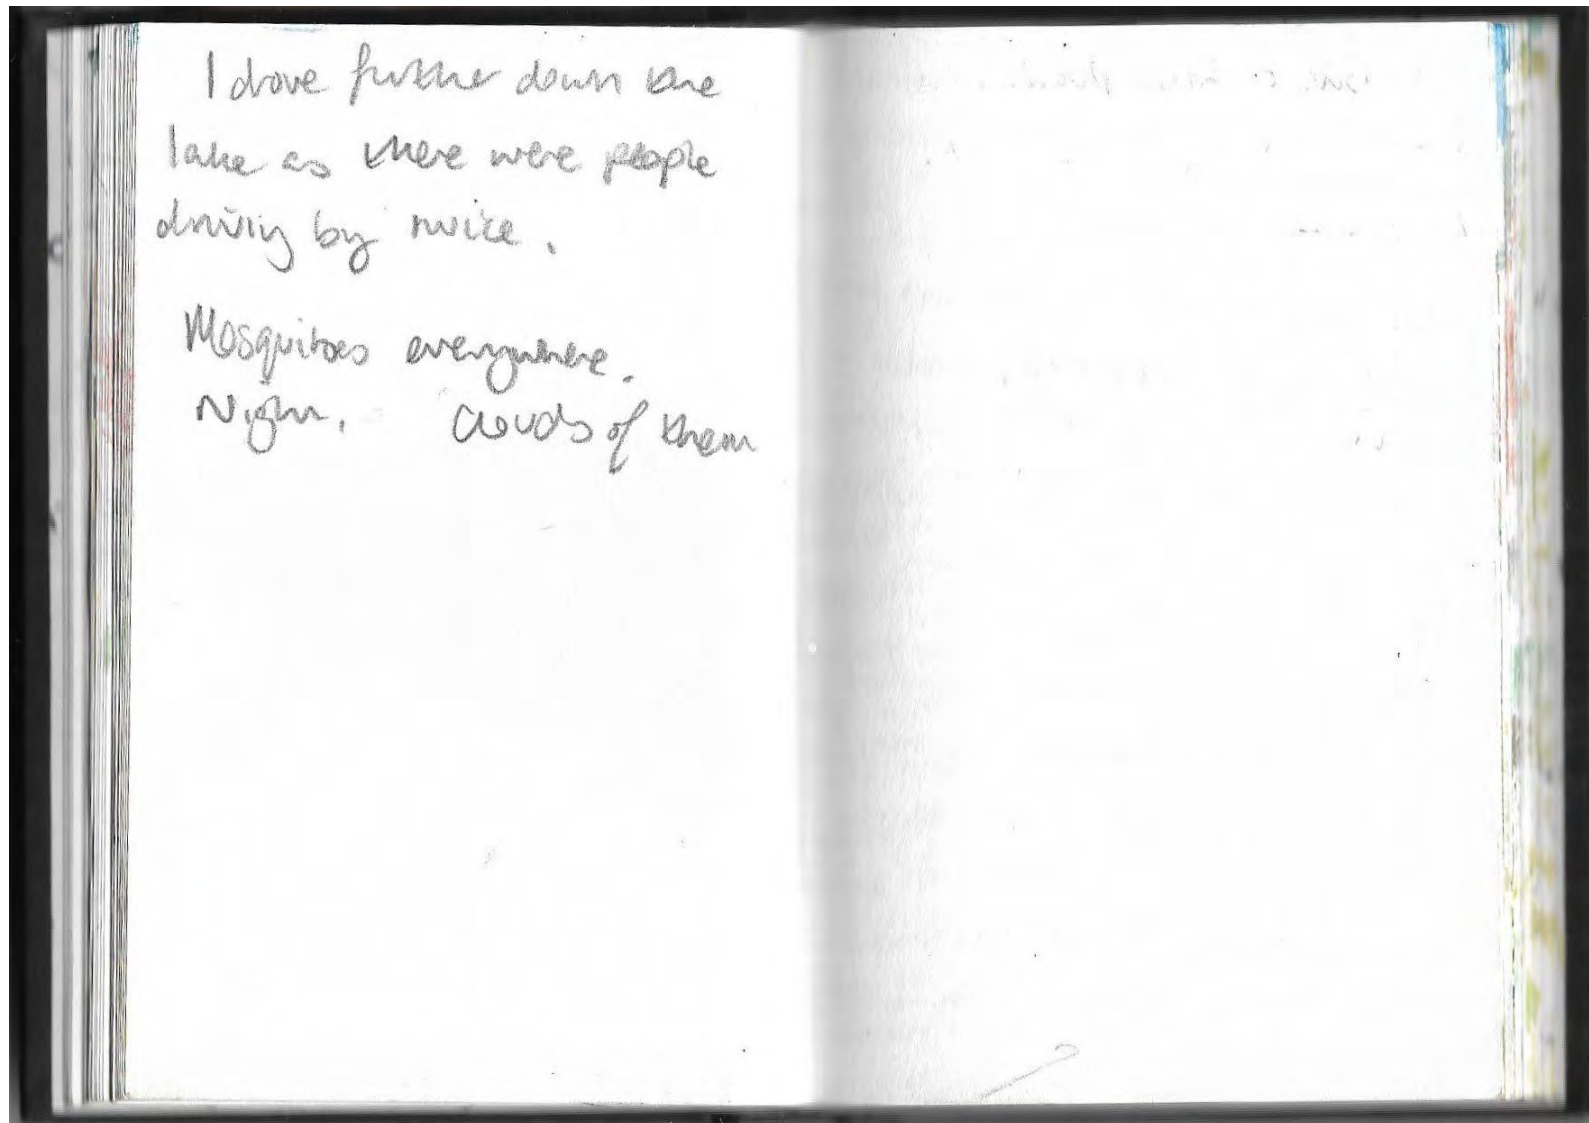 I drove further down the
lake as there were people
driving by twice.
Mosquitoes everywhere.
Night. Clouds of them